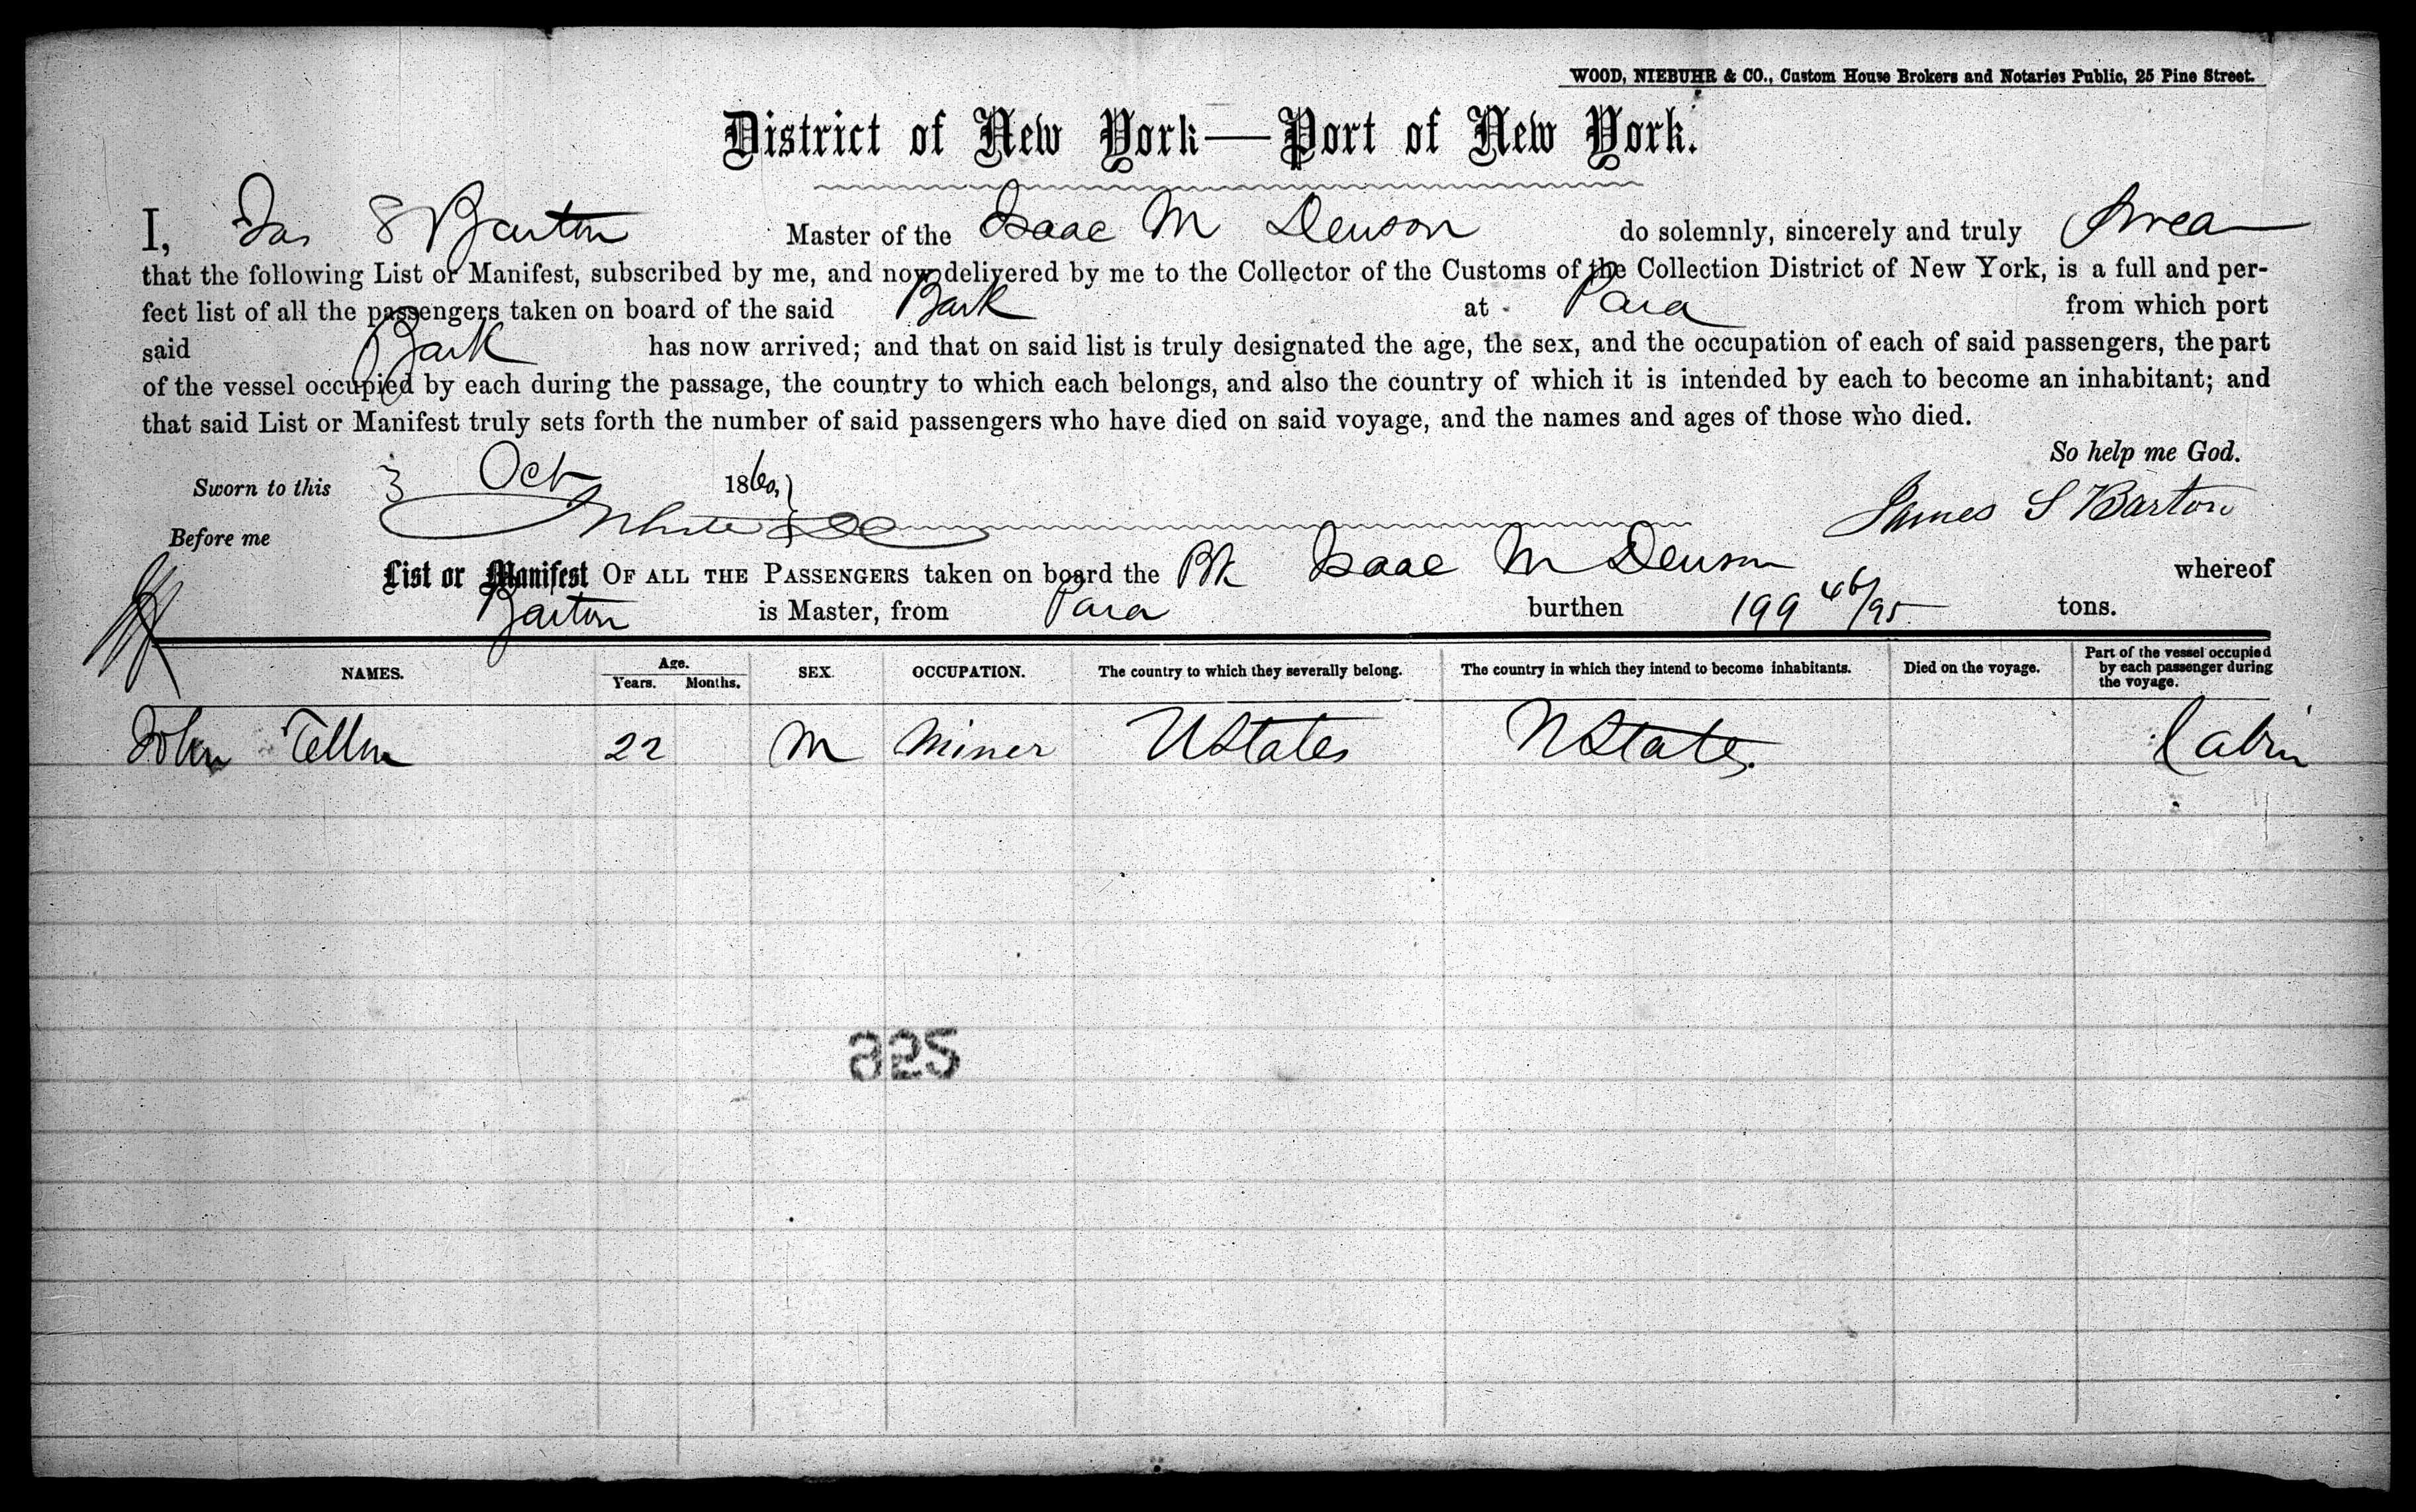 WOOD, NIEBUHR & CO., Custom House Brokers and Notaries Public, 25 Pine Street.
District of New York—Port of New York.
I, Jas S Barton Master of the Isaac M Denson do solemnly, sincerely and truly Swear
that the following List or Manifest, subscribed by me, and now delivered by me to the Collector of the Customs of the Collection District of New York, is a full and per-
fect list of all the passengers taken on board of the said Bark at Para from which port
said Bark has now arrived; and that on said list is truly designated the age, the sex, and the occupation of each of said passengers, the part
of the vessel occupied by each during the passage, the country to which each belongs, and also the country of which it is intended by each to become an inhabitant; and
that said List or Manifest truly sets forth the number of said passengers who have died on said voyage, and the names and ages of those who died.
So help me God.
Sworn to this 3 Oct 1860,
James S Barton
Before me
List or Manifest OF ALL THE PASSENGERS taken on board the Bk Isaac M Denson whereof
Barton is Master, from Para burthen 199 46/95 tons.
NAMES. Age. Years. Months. SEX. OCCUPATION. The country to which they severally belong. The country in which they intend to become inhabitants. Died on the voyage. Part of the vessel occupied by each passenger during the voyage.
John 22 M Miner UStates UStates. Cabin
825